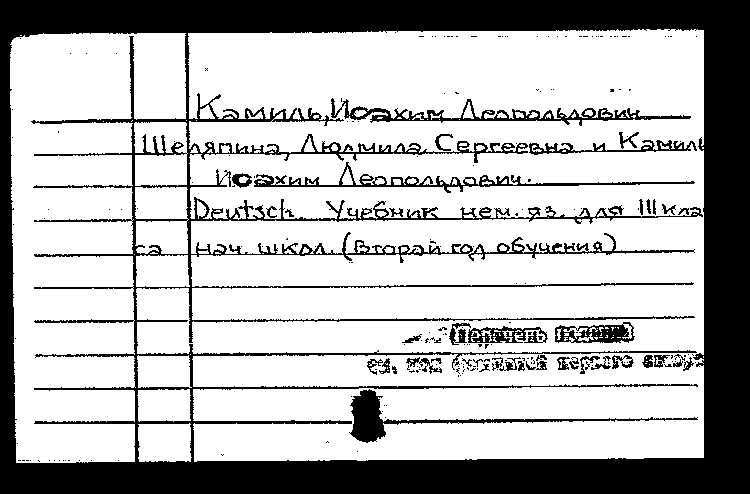 Камиль, Иоахим Леопольдович
Шеляпина, Людмила Сергеевна и Камиль
Иоахим Леопольдович.
Deutsch. Учебник нем. яз. для III клас
са нач. школ. (Второй год обучения)
Перечень изданий
см. под фамилией первого автора